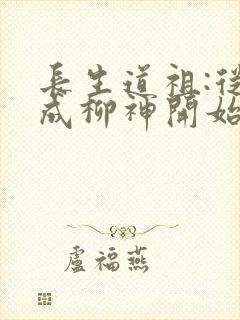 長生道祖:從
成柳神開始
盧福燕